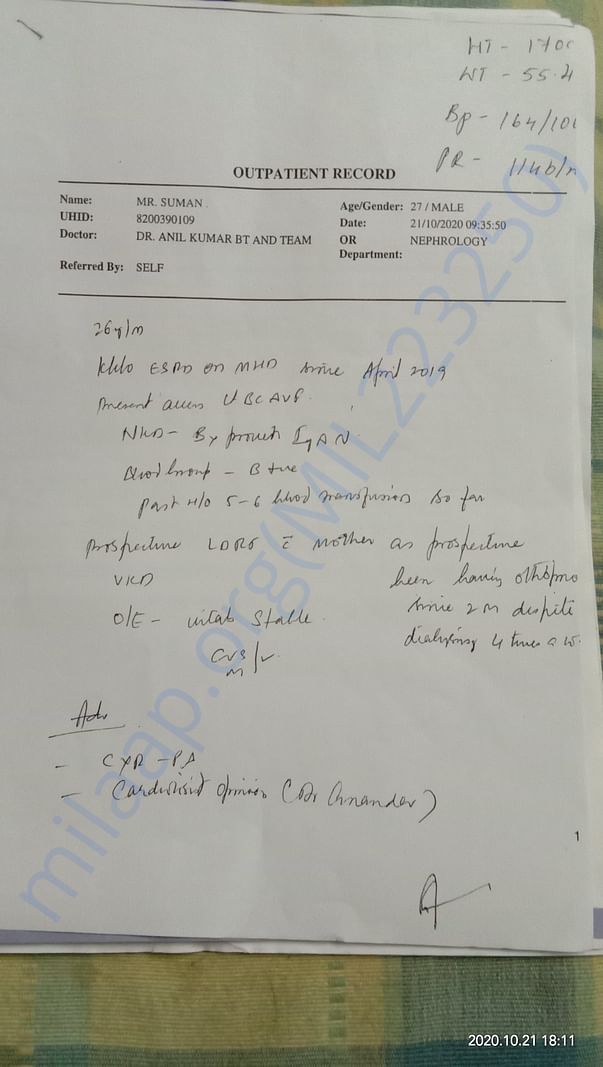 HT - 170c
WT - 55.4
Bp - 164/100
PR - 114b/m
OUTPATIENT RECORD
Name: MR. SUMAN . Age/Gender: 27 / MALE
UHID: 8200390109 Date: 21/10/2020 09:35:50
Doctor: DR. ANIL KUMAR BT AND TEAM OR Department: NEPHROLOGY
Referred By: SELF
26y/m
K/c/o ESRD on MHD since April 2019
Present access BC AVF.
NKD - Bx proven IgAN.
Blood Group - B +ve
Past H/o 5-6 blood transfusion so far
Prospective mother as prospective
VKD
been having
since 2 m despite
dialysing 4 times a w
O/E - vitals stable.
CVS
Adv
- CXR - PA
- Cardiologist opinion (Dr
1
milaap.org(MIL223250)
2020.10.21 18:11